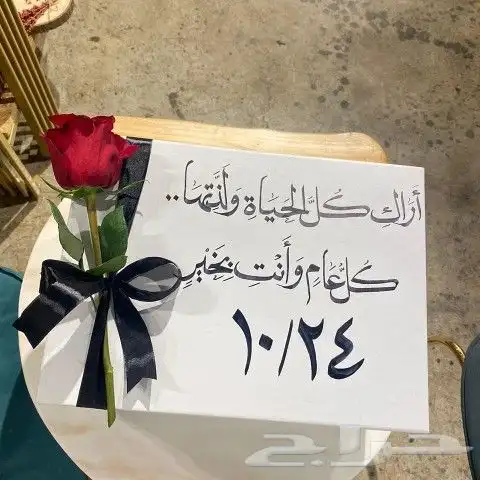 أَرَاكِ كُلَّ الحَيَاةِ وَلَذَّتِهَا..
كُلُّ عَامٍ وَأَنْتِ بِخَيْرٍ
١٠/٢٤
حراج